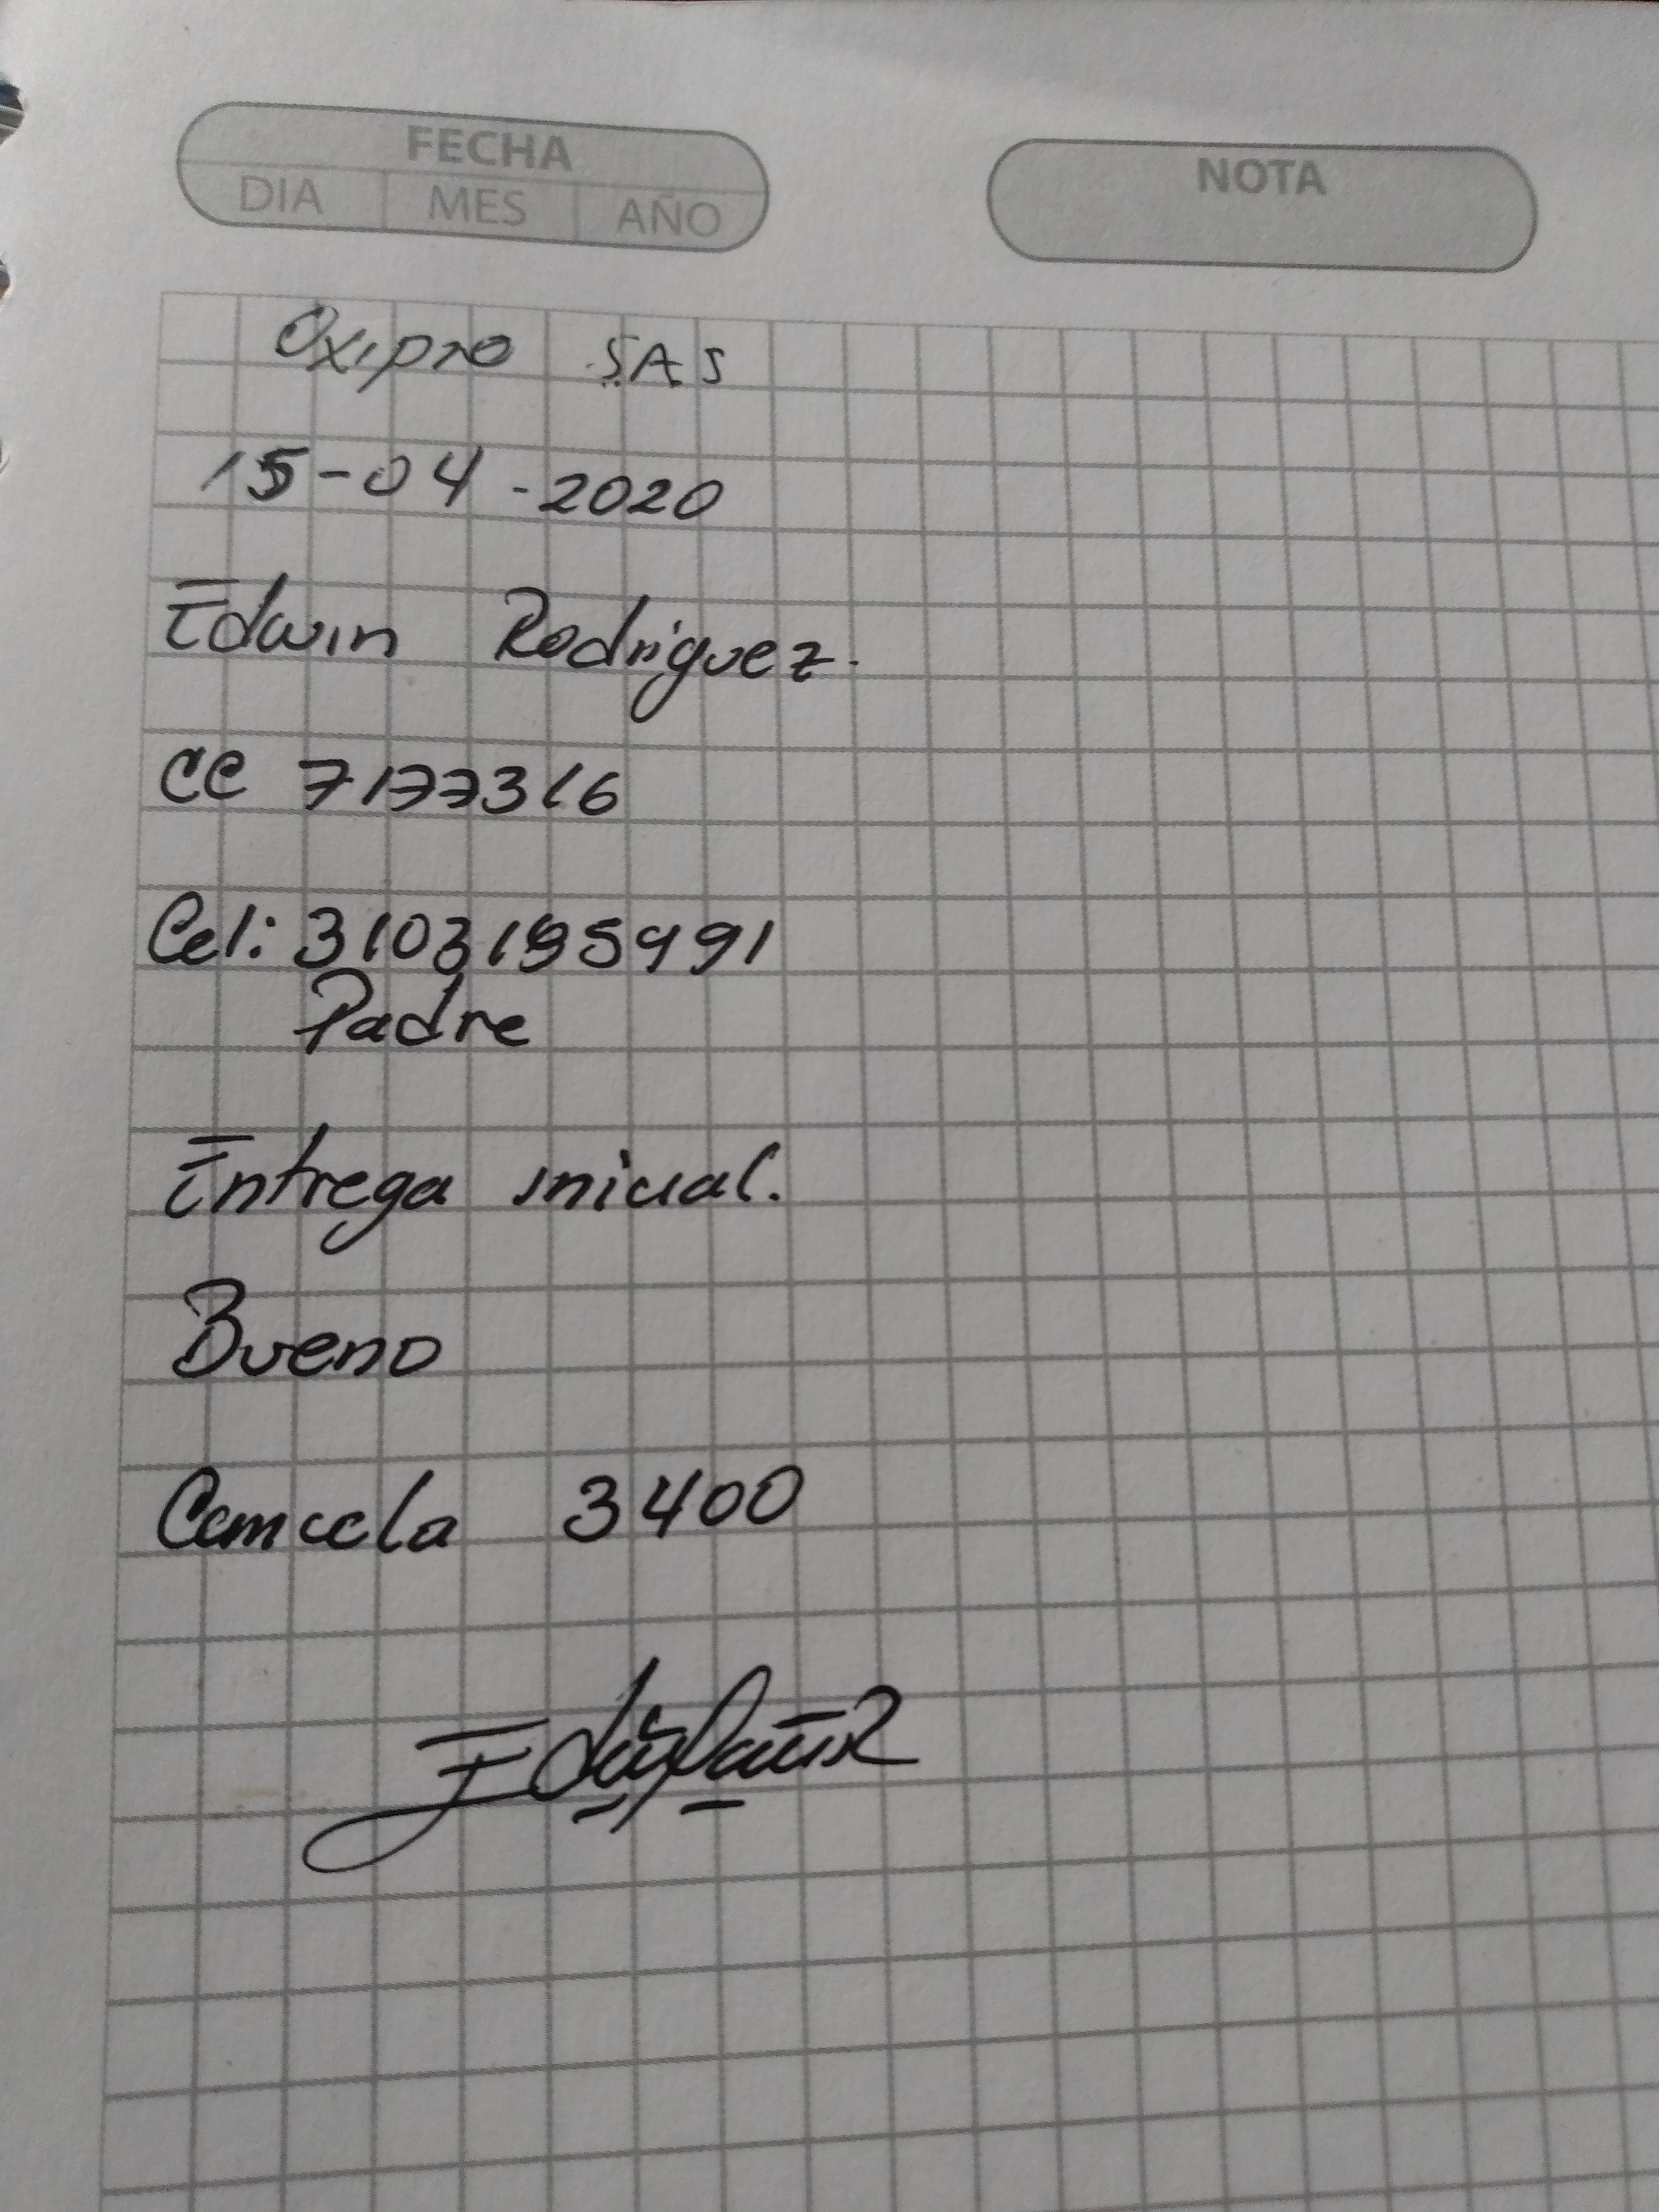 FECHA
DIA MES AÑO
NOTA
Oxipro SAS
15-04-2020
Edwin Rodriguez.
CC 7177316
Cel: 3103195991
Padre
Entrega inicial.
Bueno
3400